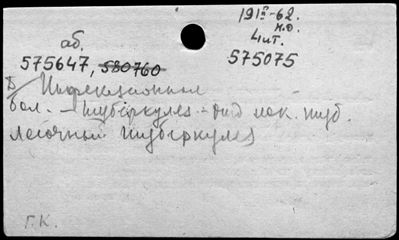 19 II-62.
аб. н.о.
4 ит.
575647, 580760 575075
Б Инфекционная
бол. – Туберкулез – лек. туб.
Легочный туберкулез
Г.К.